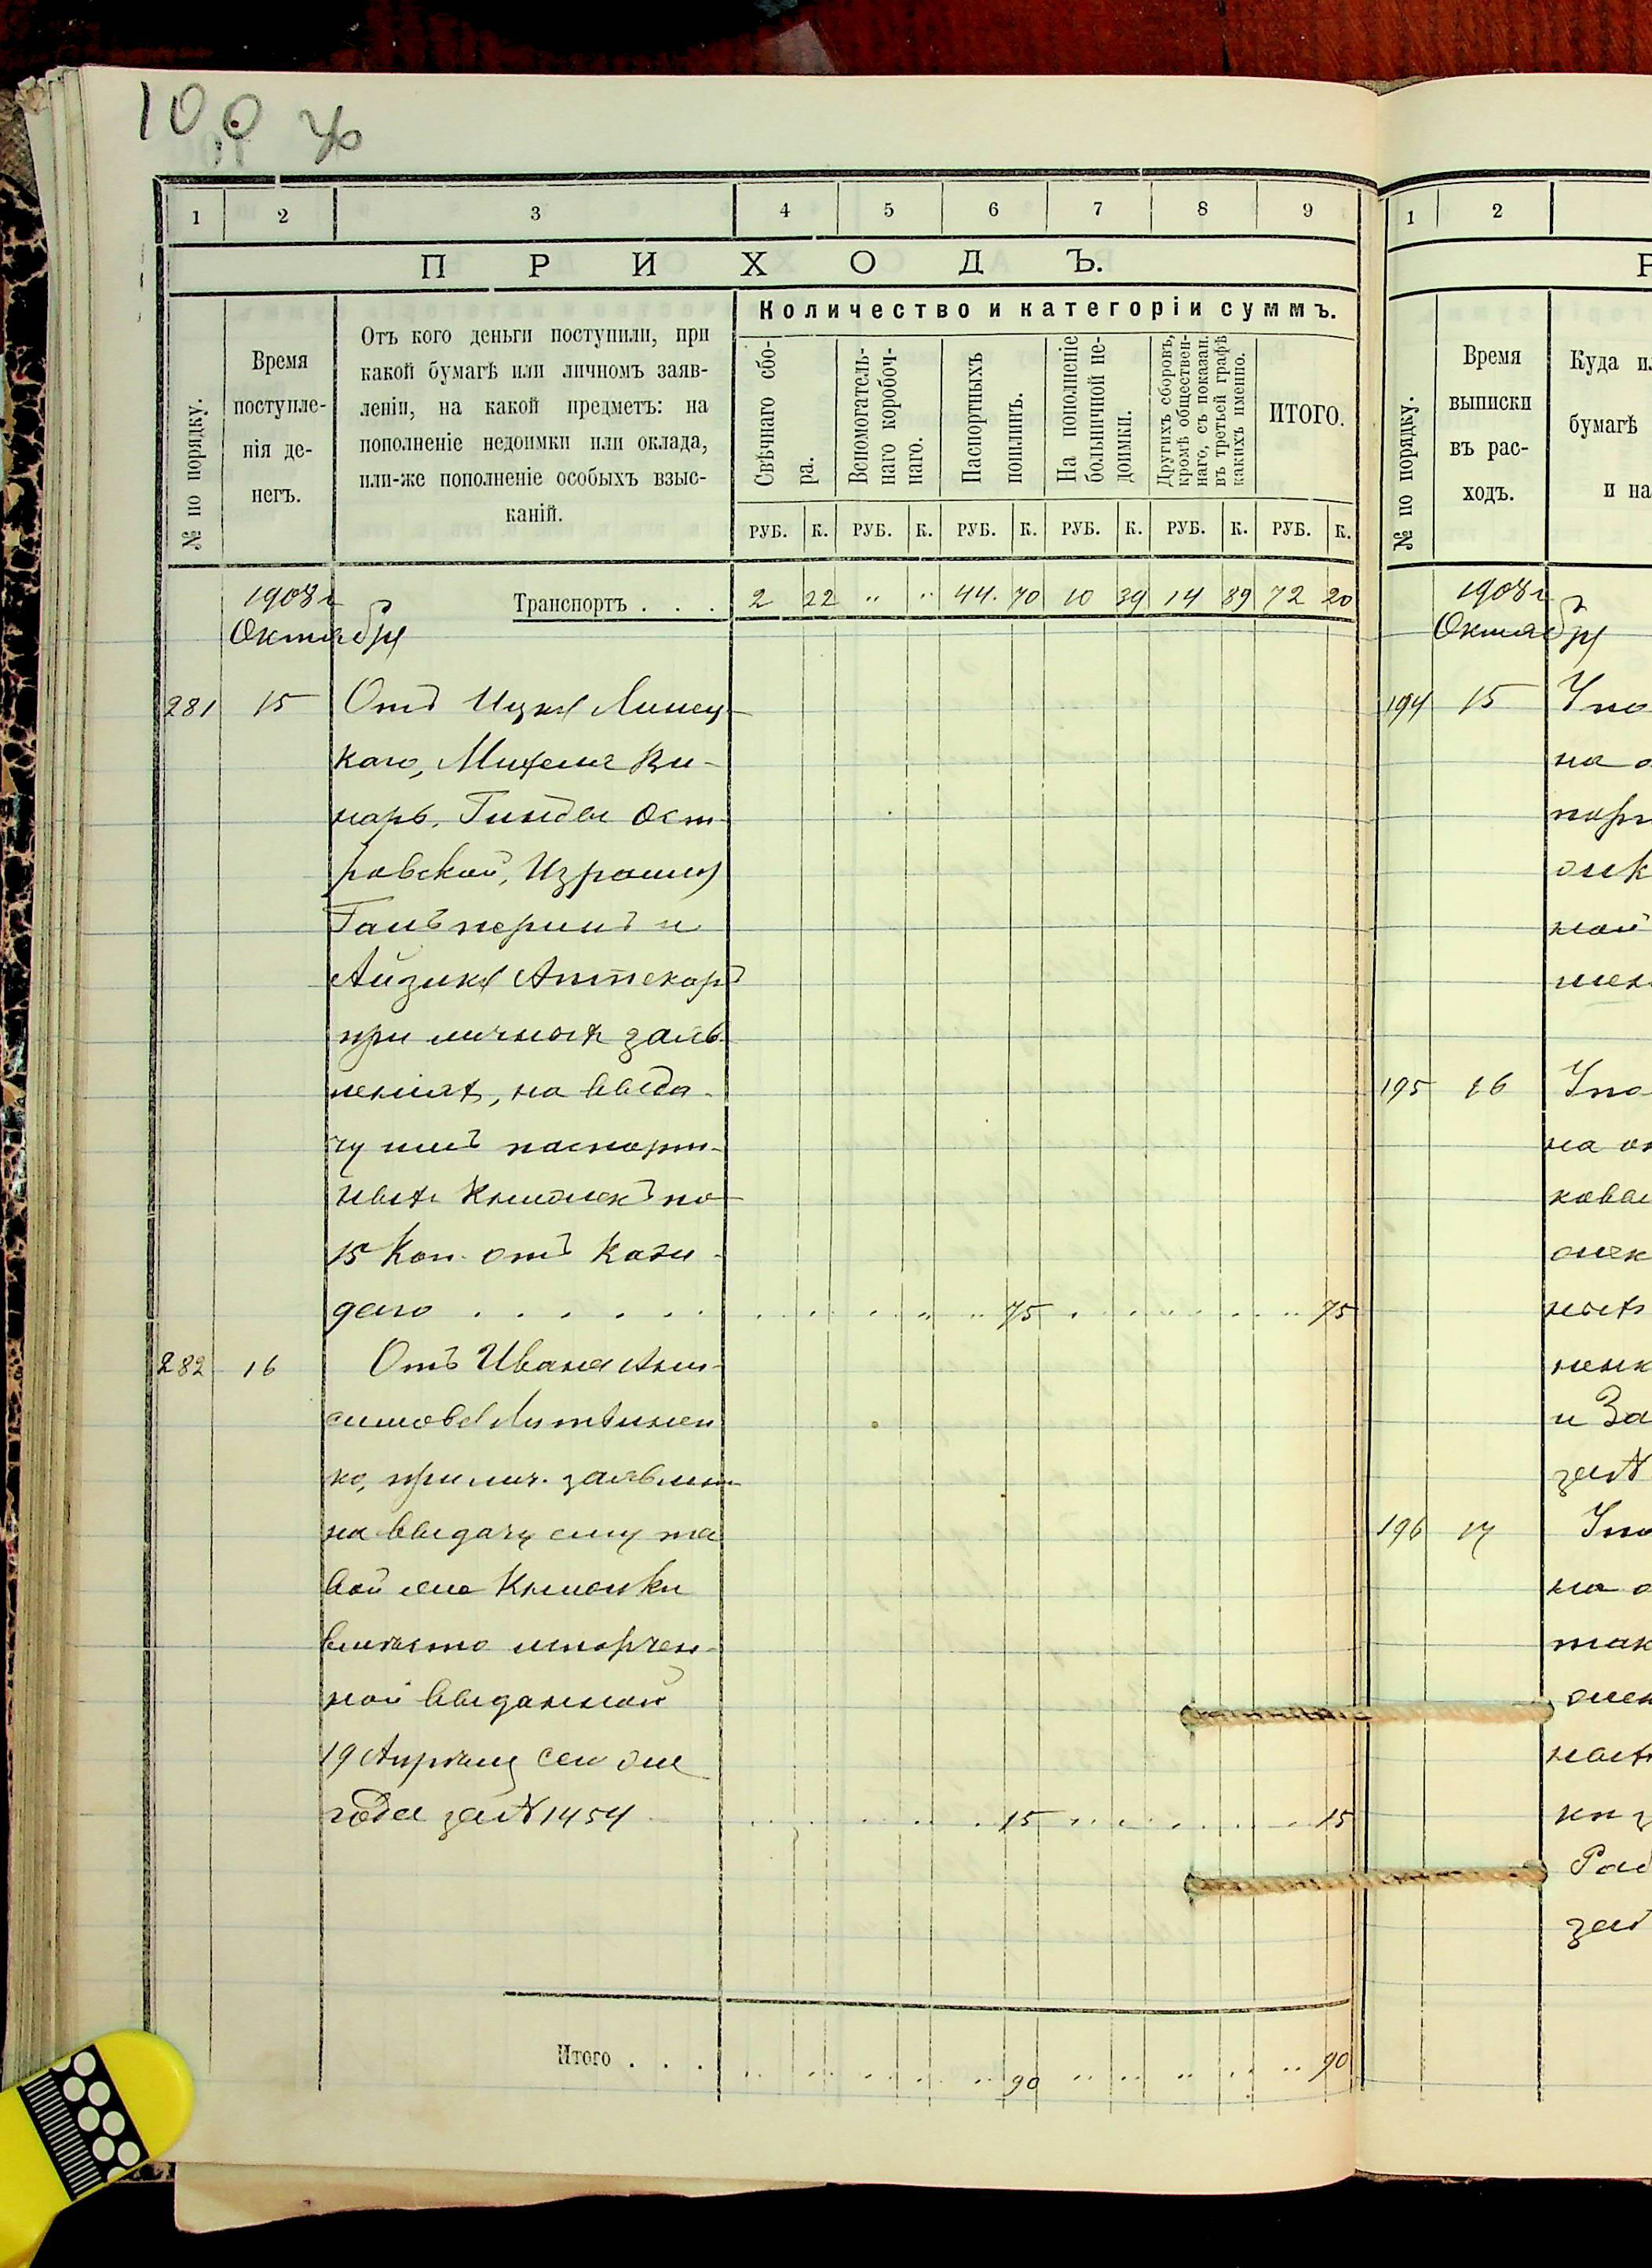 100
1 2 3 4 5 6 7 8 9
ПРИХОДЪ.
№ по порядку.
Время поступле-
нія де-
негъ.
Отъ кого деньги поступили, при
какой бумагѣ или личномъ заяв-
леніи, на какой предметъ: на
пополненіе недоимки или оклада,
или-же пополненіе особыхъ взыс-
каній.
Количество и категоріи суммъ.
Свѣчнаго сбо-
ра.
Вспомогатель-
наго коробоч-
наго.
Паспортныхъ
пошлинъ.
На пополненіе
больничной не-
доимки.
Другихъ сборовъ,
кромѣ обществен-
наго, съ показан.
въ третьей графѣ
какихъ именно.
ИТОГО.
РУБ. К. РУБ. К. РУБ. К. РУБ. К. РУБ. К. РУБ. К.
1908 г Транспортъ . . . 2 22 " " 44. 70 10 39 14 89 72 20
Октября
281 15 Отъ Ицка Линец-
каго, Михеля Ви-
нарь, Гинды Ост-
ровской, Израиля
Гальперинъ и
Айзика Аптекарь
при личныхъ заяв-
леніяхъ, на выда-
чу имъ паспорт-
ныхъ книжекъ по
15 коп. отъ каж-
даго . . . . . . " " 75 . . . . 75
282 16 Отъ Ивана Ани-
симова Литвинен
ко, при лич. заявлен
на выдачу ему но
вой кни книжки
вмѣсто испорчен-
ной выданной
19 Апрѣля сего же
года за № 1454 . . . . 15 . . . . 15
Итого . . . " 90 " " " " " 90
1 2
Р
№ по порядку.
Время
выписки
въ рас-
ходъ.
Куда и
бумагѣ
и на
1908 г
Октября
194 15 Упо
на о
ной
195 16 Упо
на
ныхъ
и За
за №
196 17 Упо
на о
так
за №